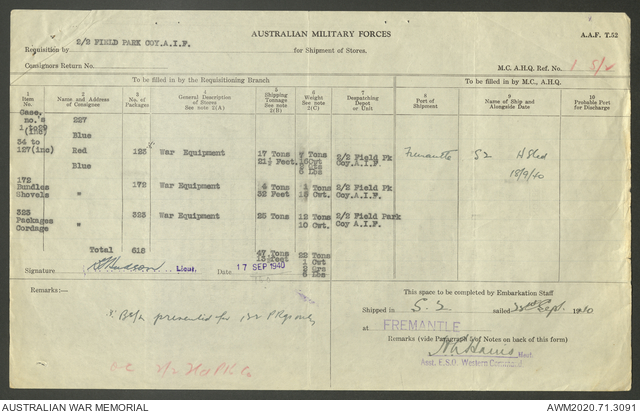 AUSTRALIAN MILITARY FORCES
A.A.F. T.52
Requisition by 2/2 FIELD PARK COY.A.I.F. for Shipment of Stores.
Consignors Return No.
M.C. A.H.Q. Ref. No. 1 S/2
To be filled in by the Requisitioning Branch
To be filled in by M.C., A.H.Q.
1 Item No.
2 Name and Address of Consignee
3 No. of Packages
4 General Description of Stores See note 2(A)
5 Shipping Tonnage See note 2(B)
6 Weight See note 2(C)
7 Despatching Depot or Unit
8 Port of Shipment
9 Name of Ship and Alongside Date
10 Probable Port for Discharge
Case, no.'s 227
(inc) Blue
34 to
127(inc) Red 123 War Equipment 17 Tons 2/2 Field Pk Fremantle S2 H Shed
Blue 21½ Feet. Coy.A.I.F. 18/9/40
6 Lbs
172 Bundles Shovels " 172 War Equipment 4 Tons 1 Ton 2/2 Field Pk
32 Feet Coy.A.I.F.
323 Packages Cordage " 323 War Equipment 25 Tons 12 Tons 2/2 Field Park
10 Cwt. Coy A.I.F.
Total 618 47 Tons 22 Tons
1 Cwt
2 Qrs
6 Lbs
Signature Lieut. Date 17 SEP 1940
Remarks:—
This space to be completed by Embarkation Staff
Shipped in S.2 sailed 22nd Sept. 1940
at FREMANTLE
Remarks (vide Paragraph 5 of Notes on back of this form)
x B/L presented for 132 Pkgs only
Asst. E.S.O. Western Command.
O.C. 2/2 Fd Pk Co
AUSTRALIAN WAR MEMORIAL
AWM2020.71.3091